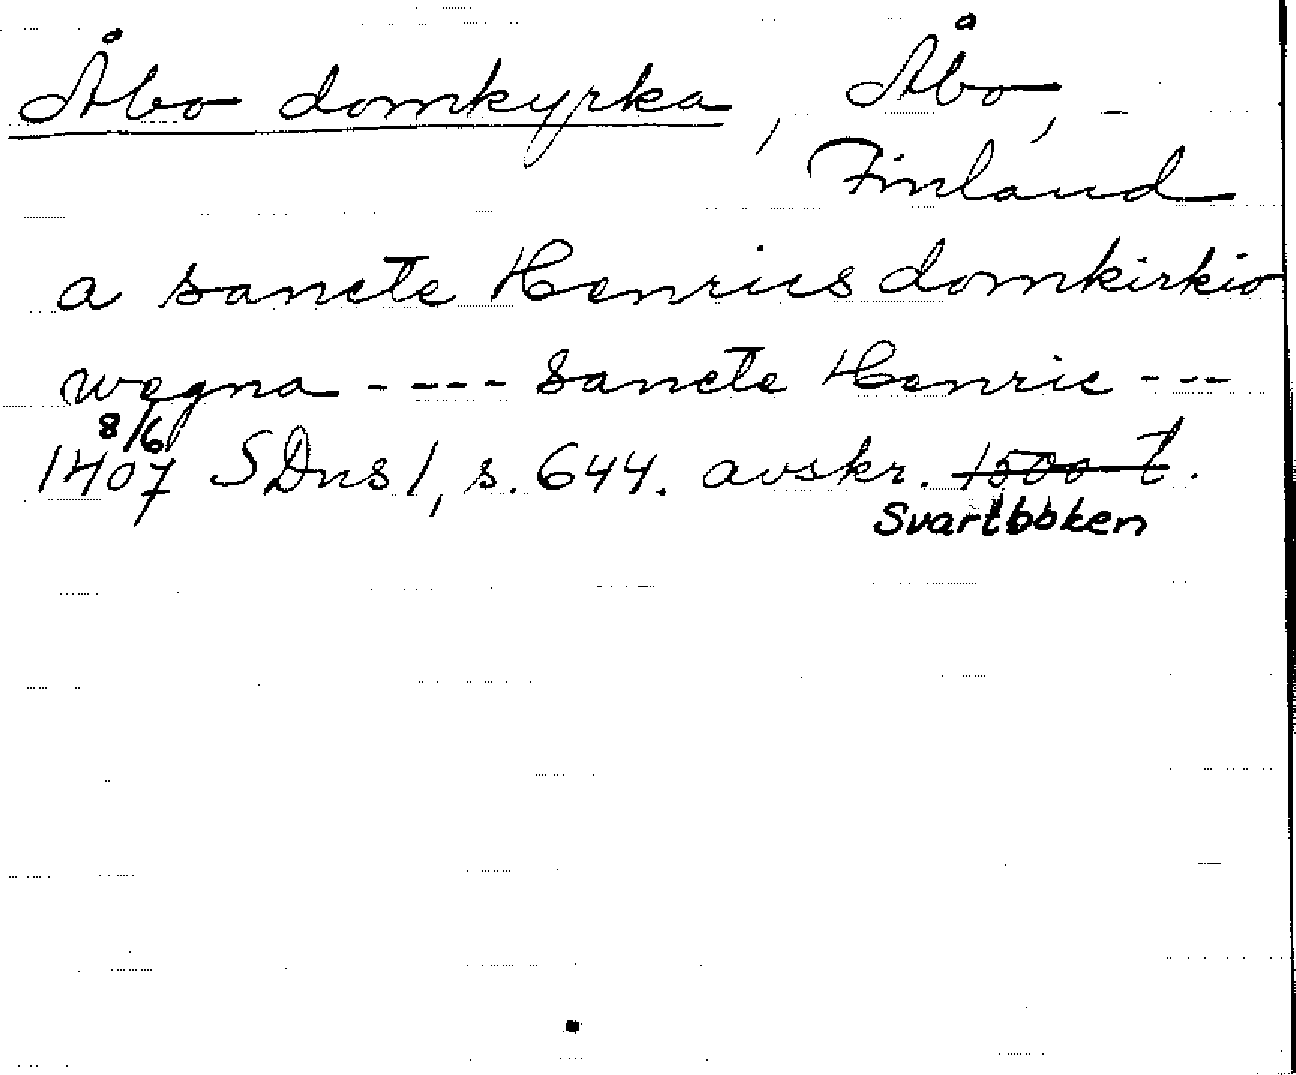 Åbo domkyrka, Åbo,
Finland
a sancte Henrics domkirkio
wegna ---- Sancte Henric ---
8/6
1407 SDns 1, s. 644. avskr. 1500-t.
Svartboken